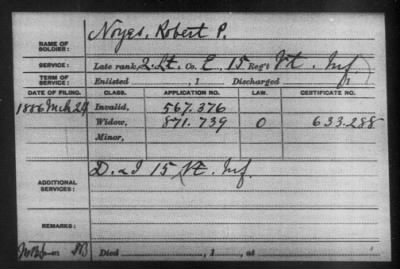 NAME OF SOLDIER: Noyes, Robert P.
SERVICE: Late rank, 2. Lt. Co. E, 15 Reg't Vt. Inf.
TERM OF SERVICE: Enlisted , 1 Discharged , 1
DATE OF FILING. CLASS. APPLICATION NO. LAW. CERTIFICATE NO.
1886 Mch 24 Invalid, 567.376
Widow, 871.739 O 633.288
Minor,
ADDITIONAL SERVICES: D. & I 15 Vt. Inf.
REMARKS:
Died , 1 , at